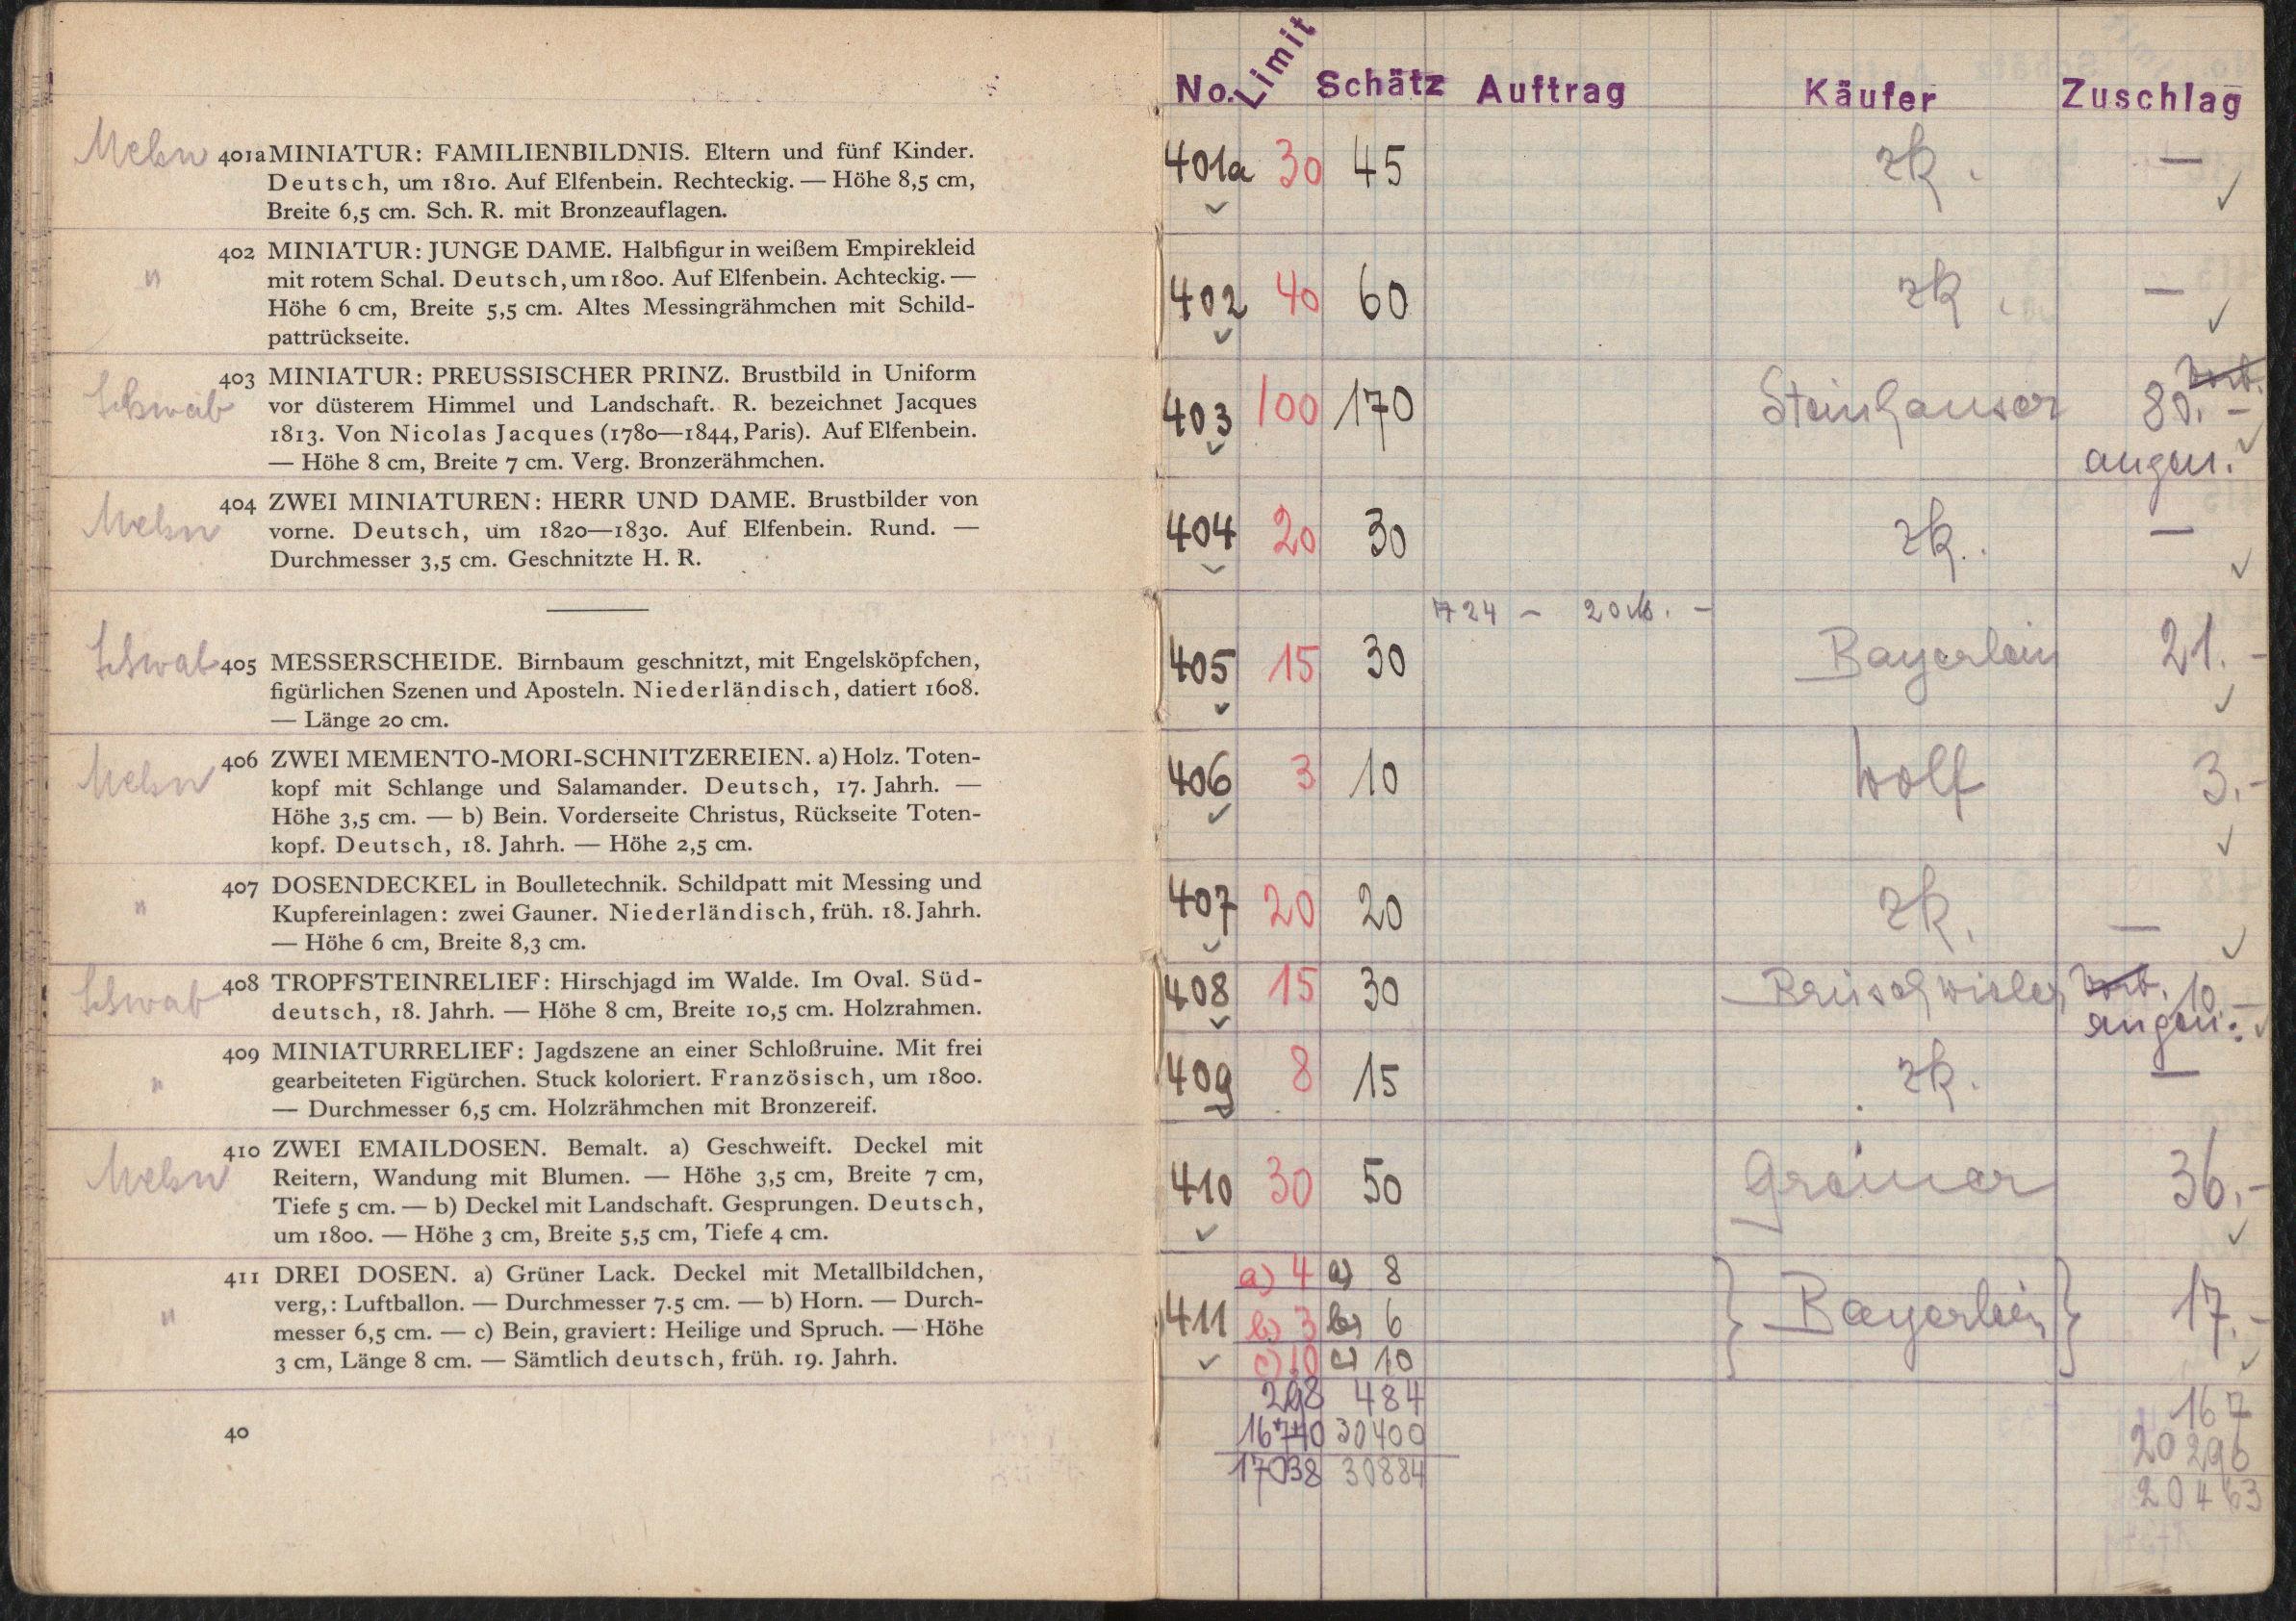 Mehn 401a MINIATUR: FAMILIENBILDNIS. Eltern und fünf Kinder.
Deutsch, um 1810. Auf Elfenbein. Rechteckig. — Höhe 8,5 cm,
Breite 6,5 cm. Sch. R. mit Bronzeauflagen.
" 402 MINIATUR: JUNGE DAME. Halbfigur in weißem Empirekleid
mit rotem Schal. Deutsch, um 1800. Auf Elfenbein. Achteckig. —
Höhe 6 cm, Breite 5,5 cm. Altes Messingrähmchen mit Schild-
pattrückseite.
Schwab 403 MINIATUR: PREUSSISCHER PRINZ. Brustbild in Uniform
vor düsterem Himmel und Landschaft. R. bezeichnet Jacques
1813. Von Nicolas Jacques (1780—1844, Paris). Auf Elfenbein.
— Höhe 8 cm, Breite 7 cm. Verg. Bronzerähmchen.
Mehn 404 ZWEI MINIATUREN: HERR UND DAME. Brustbilder von
vorne. Deutsch, um 1820—1830. Auf Elfenbein. Rund. —
Durchmesser 3,5 cm. Geschnitzte H. R.
Schwab 405 MESSERSCHEIDE. Birnbaum geschnitzt, mit Engelsköpfchen,
figürlichen Szenen und Aposteln. Niederländisch, datiert 1608.
— Länge 20 cm.
Mehn 406 ZWEI MEMENTO-MORI-SCHNITZEREIEN. a) Holz. Toten-
kopf mit Schlange und Salamander. Deutsch, 17. Jahrh. —
Höhe 3,5 cm. — b) Bein. Vorderseite Christus, Rückseite Toten-
kopf. Deutsch, 18. Jahrh. — Höhe 2,5 cm.
" 407 DOSENDECKEL in Boulletechnik. Schildpatt mit Messing und
Kupfereinlagen: zwei Gauner. Niederländisch, früh. 18. Jahrh.
— Höhe 6 cm, Breite 8,3 cm.
Schwab 408 TROPFSTEINRELIEF: Hirschjagd im Walde. Im Oval. Süd-
deutsch, 18. Jahrh. — Höhe 8 cm, Breite 10,5 cm. Holzrahmen.
" 409 MINIATURRELIEF: Jagdszene an einer Schloßruine. Mit frei
gearbeiteten Figürchen. Stuck koloriert. Französisch, um 1800.
— Durchmesser 6,5 cm. Holzrähmchen mit Bronzereif.
Mehn 410 ZWEI EMAILDOSEN. Bemalt. a) Geschweift. Deckel mit
Reitern, Wandung mit Blumen. — Höhe 3,5 cm, Breite 7 cm,
Tiefe 5 cm. — b) Deckel mit Landschaft. Gesprungen. Deutsch,
um 1800. — Höhe 3 cm, Breite 5,5 cm, Tiefe 4 cm.
" 411 DREI DOSEN. a) Grüner Lack. Deckel mit Metallbildchen,
verg,: Luftballon. — Durchmesser 7.5 cm. — b) Horn. — Durch-
messer 6,5 cm. — c) Bein, graviert: Heilige und Spruch. — Höhe
3 cm, Länge 8 cm. — Sämtlich deutsch, früh. 19. Jahrh.
40
No. Limit Schätz Auftrag Käufer Zuschlag
401a 30 45 zk. — ✓
402 40 60 zk. — ✓
403 100 170 Steinhauser 80.— ✓
angen.
404 20 30 zk. — ✓
24 – 20
405 15 30 Bayerlein 21.— ✓
406 3 10 Wolf 3.— ✓
407 20 20 zk. — ✓
408 15 30 Brüschwiler 10.—
angen. ✓
409 8 15 zk. —
410 30 50 Greiner 36.— ✓
a) 4 a) 8
411 b) 3 b) 6 } Bayerlein } 17.— ✓
c) 10 c) 10
298 484 167
16740 30400 20296
17038 30884 20463